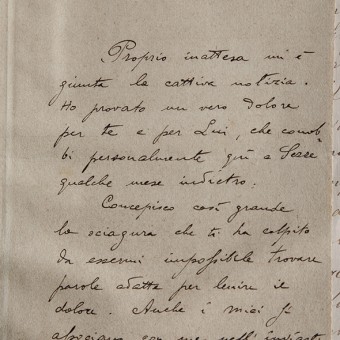 Proprio inattesa mi è
giunta la cattiva notizia.
Ho provato un vero dolore
per te e per Lui, che conob-
bi personalmente giù a
qualche mese indietro.
Concepisco così grande
la sciagura che ti ha colpito
da essermi impossibile trovare
parole adatte per lenire il
dolore. Anche i miei si
associano con me nell'inviarti